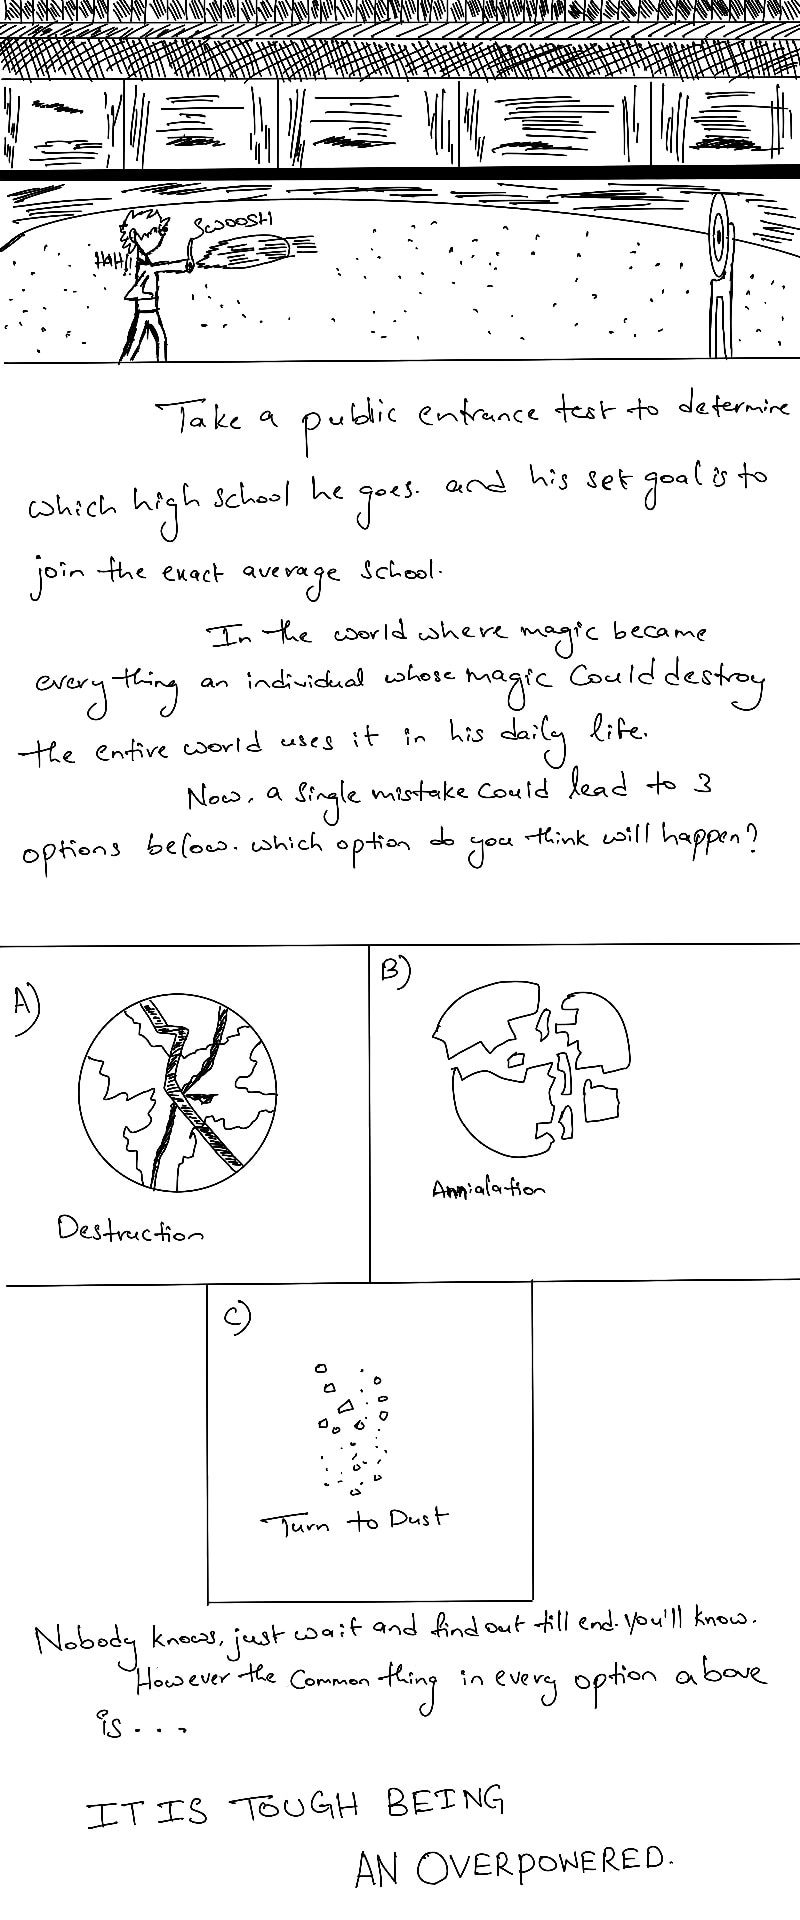 SWOOSH
HAH!!
Take a public entrance test to determine
which high school he goes. and his set goal is to
join the exact average school.
In the world where magic became
everything an individual whose magic could destroy
the entire world uses it in his daily life.
Now, a single mistake could lead to 3
options below. which option do you think will happen?
A)
Destruction
B)
Annialation
C)
Turn to Dust
Nobody knows, just wait and find out till end. you'll know.
However the common thing in every option above
is . . .
IT IS TOUGH BEING
AN OVERPOWERED.